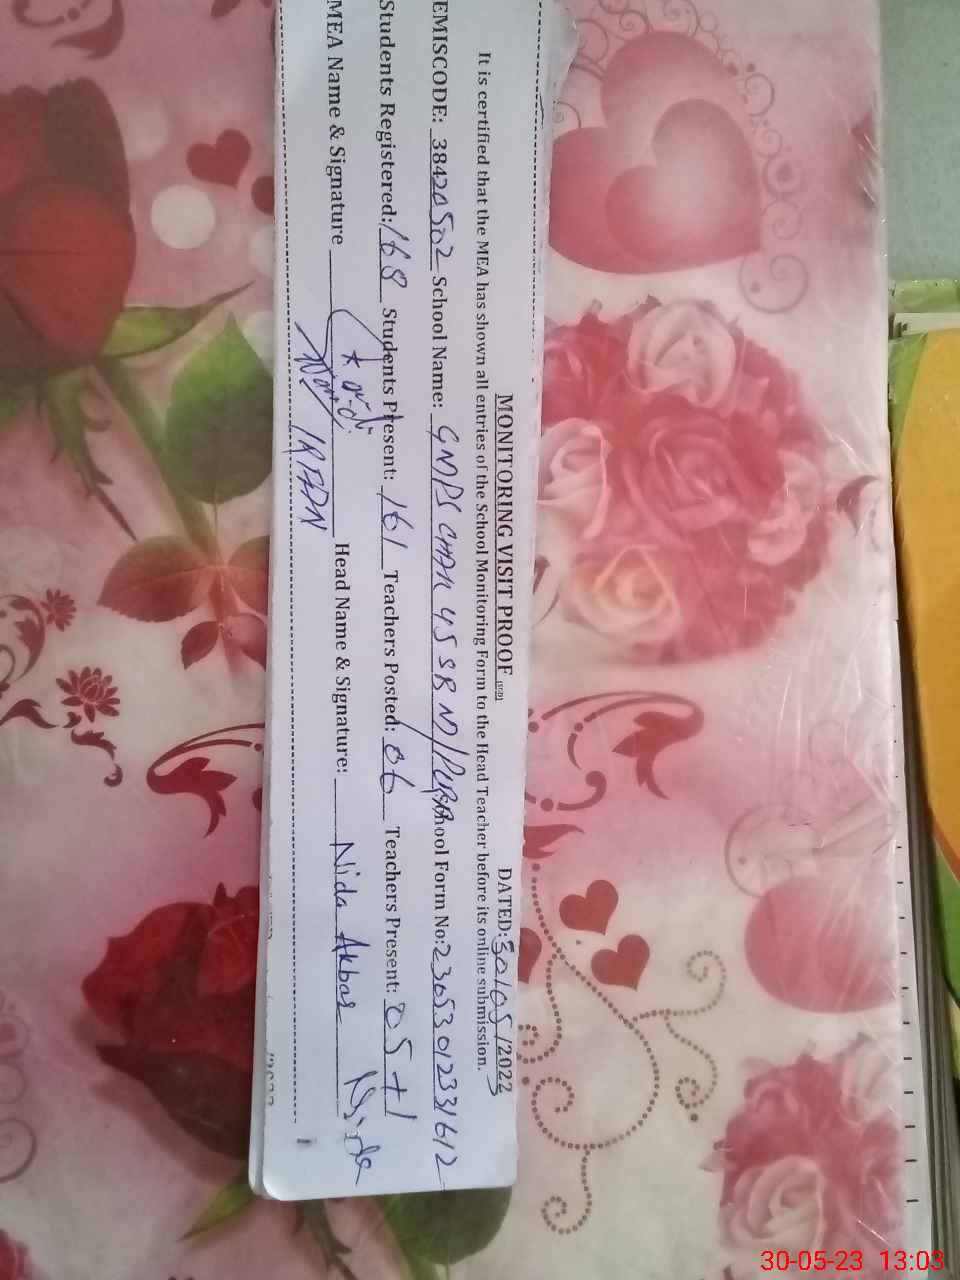 MONITORING VISIT PROOF DATED: 30/05/2023
It is certified that the MEA has shown all entries of the School Monitoring Form to the Head Teacher before its online submission.
EMISCODE: 38420502 School Name: GMPS CHAK 45 SB N/PURA School Form No: 23053012331612
Students Registered: 168 Students Present: 161 Teachers Posted: 06 Teachers Present: 05+1
MEA Name & Signature Head Name & Signature: Nida Akbar Nida
30-05-23 13:03